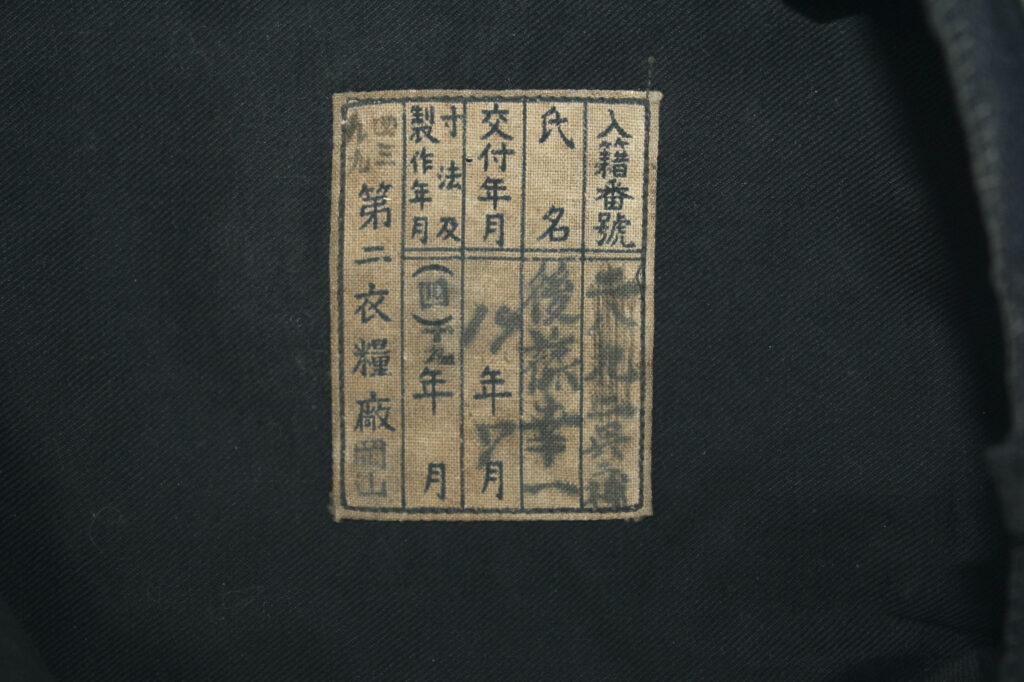 入籍番號
氏名 後藤幸一
交付年月 19年 月
寸法及製作年月 (四) 十九年 月
四三 九九 第二衣糧廠 岡山